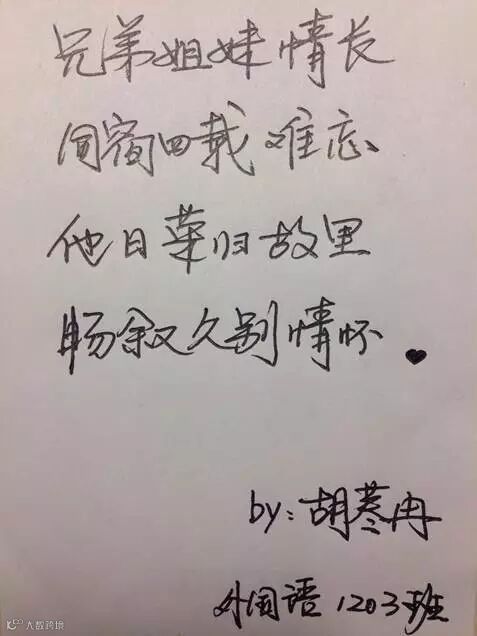 兄弟姐妹情长
同窗四载难忘
他日荣归故里
畅叙久别情怀
by:胡蔘冉
外国语1203班
大数跨境